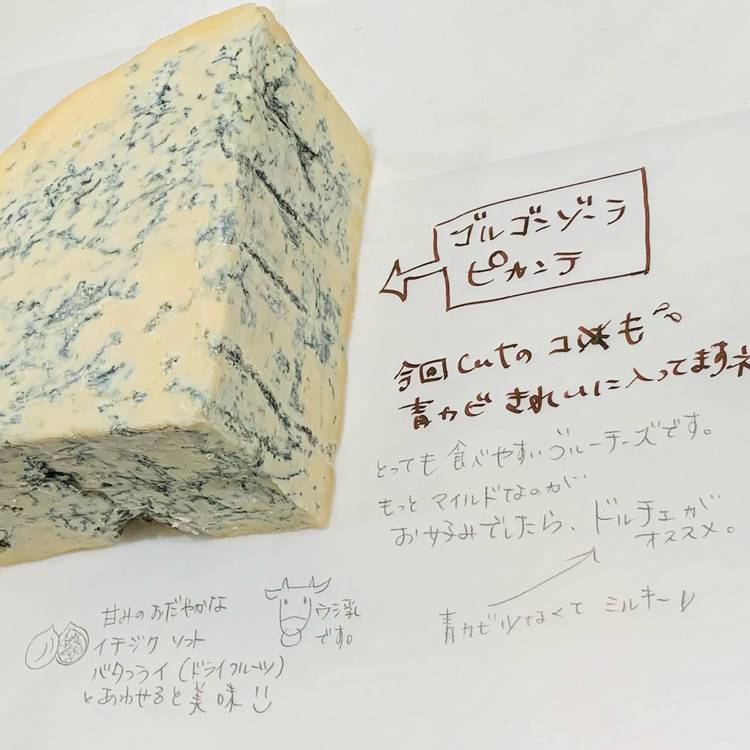 ゴルゴンゾーラ
ピカンテ
今回cutのコも〜。
青カビきれいに入ってますネ
とっても食べやすいブルーチーズです。
もっとマイルドなのが
お好みでしたら、ドルチェが
オススメ。
青カビ少なくてミルキー
甘みのおだやかな
イチジク ソフト
バタフライ(ドライフルーツ)
とあわせると美味
ウシ乳
です。